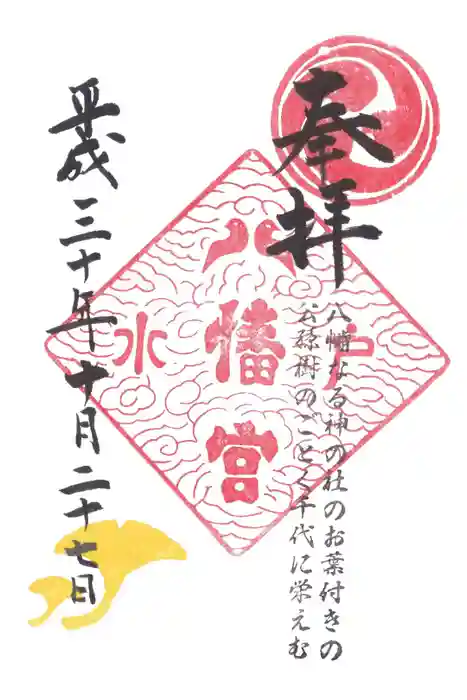 奉拝
八幡なる神の杜のお葉付きの
公孫樹のごとく千代に栄えむ
水戸
八幡宮
平成三十年十月二十七日